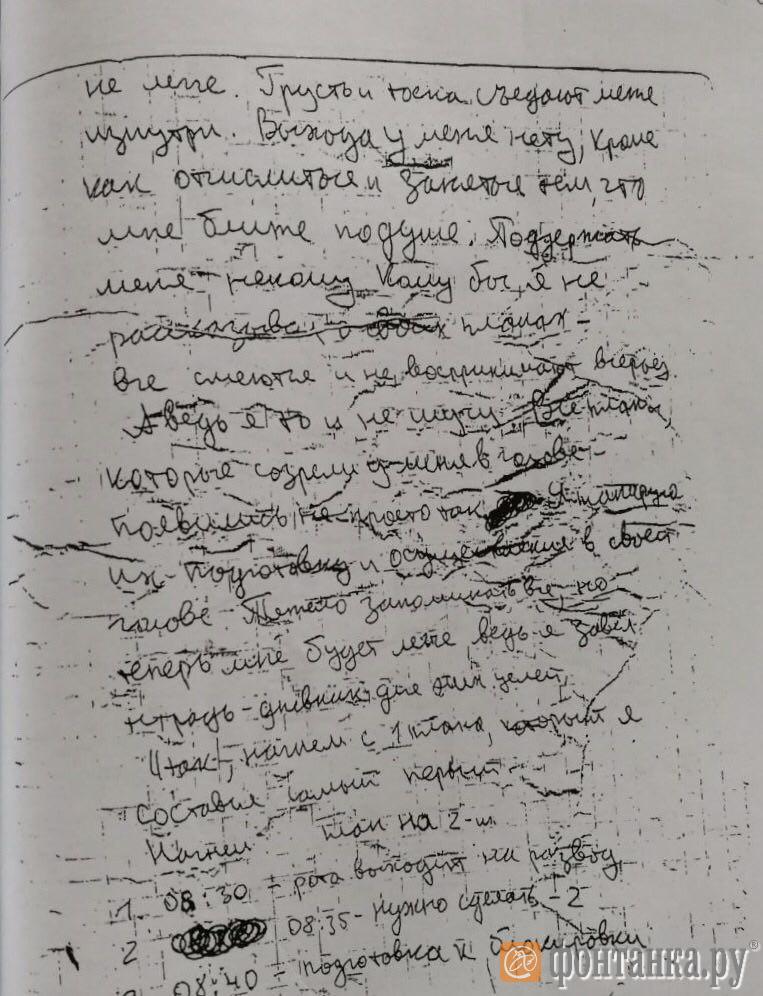 не мне. Грусть и тоска съедают меня
изнутри. Выхода у меня нету, кроме
как отчислиться и заняться тем, что
мне ближе по душе. Поддержать
меня некому. Кому бы я не
рассказывал о своих планах -
все смеются и не воспринимают всерьез.
А ведь я то и не шучу. Все планы,
которые созрели у меня в голове -
появились не просто так. Я планирую
их подготовку и осуществления в своей
голове. Тяжело запоминать все, но
теперь мне будет легче ведь я завел
тетрадь-дневник для этих целей.
Итак, начнем с 1 плана, который я
составил самый первый
Начнем план на 2-
1. 08:30 - рота выходит на развод
2 08:35 - нужно сделать - 2
08:40 - подготовка к блокировки
фонтанка.ру®